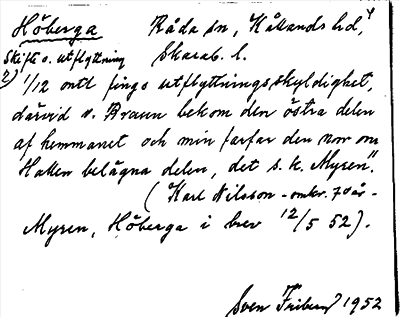 Höberga Råda sn, Kållands hd,
Skifte o. utflyttning Skarab. l.
2) 1/12 ontl fings utflyttningsskyldighet,
därvid v. Braun bekom den östra delen
af hemmanet och min farfar den norr om
Hallen belägna delen, det s. k. Myren".
(Karl Nilsson - omkr. 70 år -
Myren, Höberga i brev 12/5 52).
Sven Friberg 1952